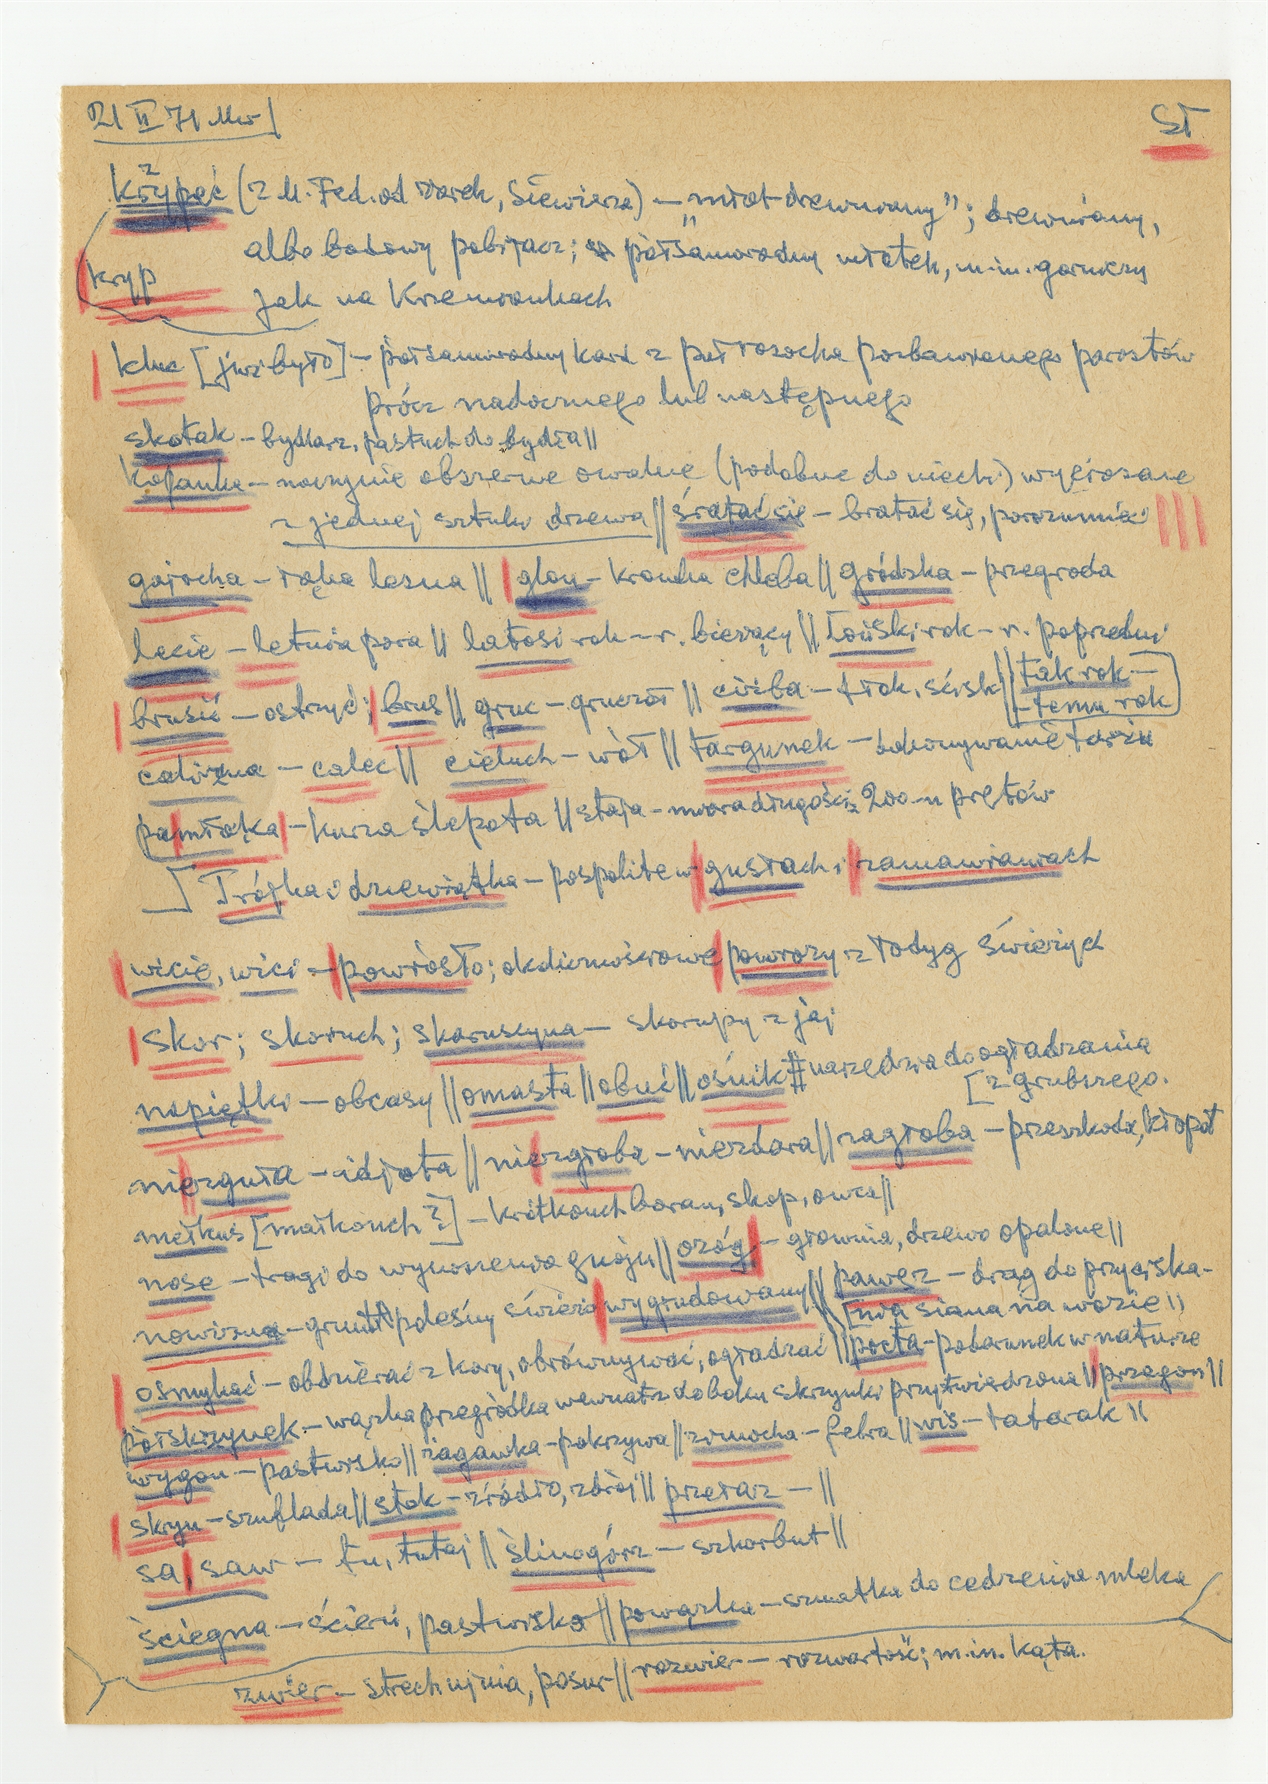 21 II 71
ST
krzypać (z M. Fed. od Siewierza) – „młot drewniany"; drewniany,
albo pobijacz; półsamorodny młotek, m.in. górniczy
kryp
jak na Krzemionkach
kluc [już było] – półsamorodny z poroża pozbawionego parostków
prócz nadocznego lub następnego
skotak – bydlarz, pastuch do bydła ||
kopanka – naczynie obszerne owalne (podobne do niecki) wyciosane
z jednej sztuki drzewa || śratać się – bratać się, porozumieć
gajocha – łąka leśna || glon – kromka chleba || gródzka – przegroda
lecie – letnia pora || latosi rok – r. bieżący || łoński rok – r. poprzedni
brusić – ostrzyć; brus || gruc – gruczoł || ciżba – tłok, ścisk || tak rok –
– temu rok
calizna – calec || cieluch – wół || targunek – dokonywanie targu
pamłąka – kurza ślepota || staja – miara długości 200-u prętów
Trójka i dziewiątka – pospolite w gusłach i zamawianiach
wicie, wici – powrósło; powrozy z łodyg świeżych
skor; skoruch; skaruszyna – skorupy z jaj
napiętki – obcasy || omasta || obuć || ośnik # narzędzie do ogładzania
[z grubszego.
niezguła – idjota || niezgroba – niezdara || zagroba – przeszkoda, kłopot
metkus [matkouch?] – baran, skop, owca ||
nose – tragi do wynoszenia gnoju || ożóg – głownia, drzewo opalone ||
nowizna – grunt poleśny świeżo wygrudowany || pawęz – drąg do przyciska-
[nia siana na wozie ||
osmykać – obdzierać z kory, obrównywać, ogładzać || pocta – podarunek w naturze
półskrzynek – wąska przegródka wewnątrz do boku skrzynki przytwierdzona || przegon ||
wygon – pastwisko || żagawka – pokrzywa || zimocha – febra || wiś – tatarak ||
skryn – szuflada || stok – źródło, zdrój || przełaz – ||
sa, saw – tu, tutaj || ślinogórz – szkorbut ||
ściegna – ścierń, pastwisko || powązka – szmatka do cedzenia mleka
zwier – posuw || rozwier – rozwartość; m.in. kąta.